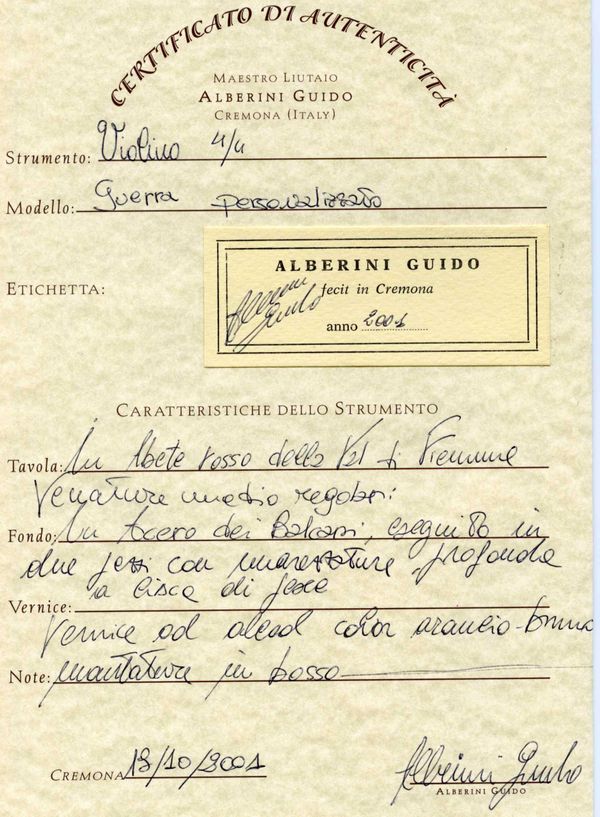 CERTIFICATO DI AUTENTICITÀ
MAESTRO LIUTAIO
ALBERINI GUIDO
CREMONA (ITALY)
Strumento: Violino 4/4
Modello: Guerra personalizzato
ETICHETTA:
ALBERINI GUIDO
fecit in Cremona
Alberini Guido
anno 2001
CARATTERISTICHE DELLO STRUMENTO
Tavola: In Abete rosso della Val di Fiemme
Venature medio regolari:
Fondo: In Acero dei Balcani, eseguito in
due pezzi con marezzature profonde
a lisca di pesce
Vernice:
Vernice ad alcool color arancio-bruno
Note: montatura in bosso
CREMONA 12/10/2001
Alberini Guido
ALBERINI GUIDO